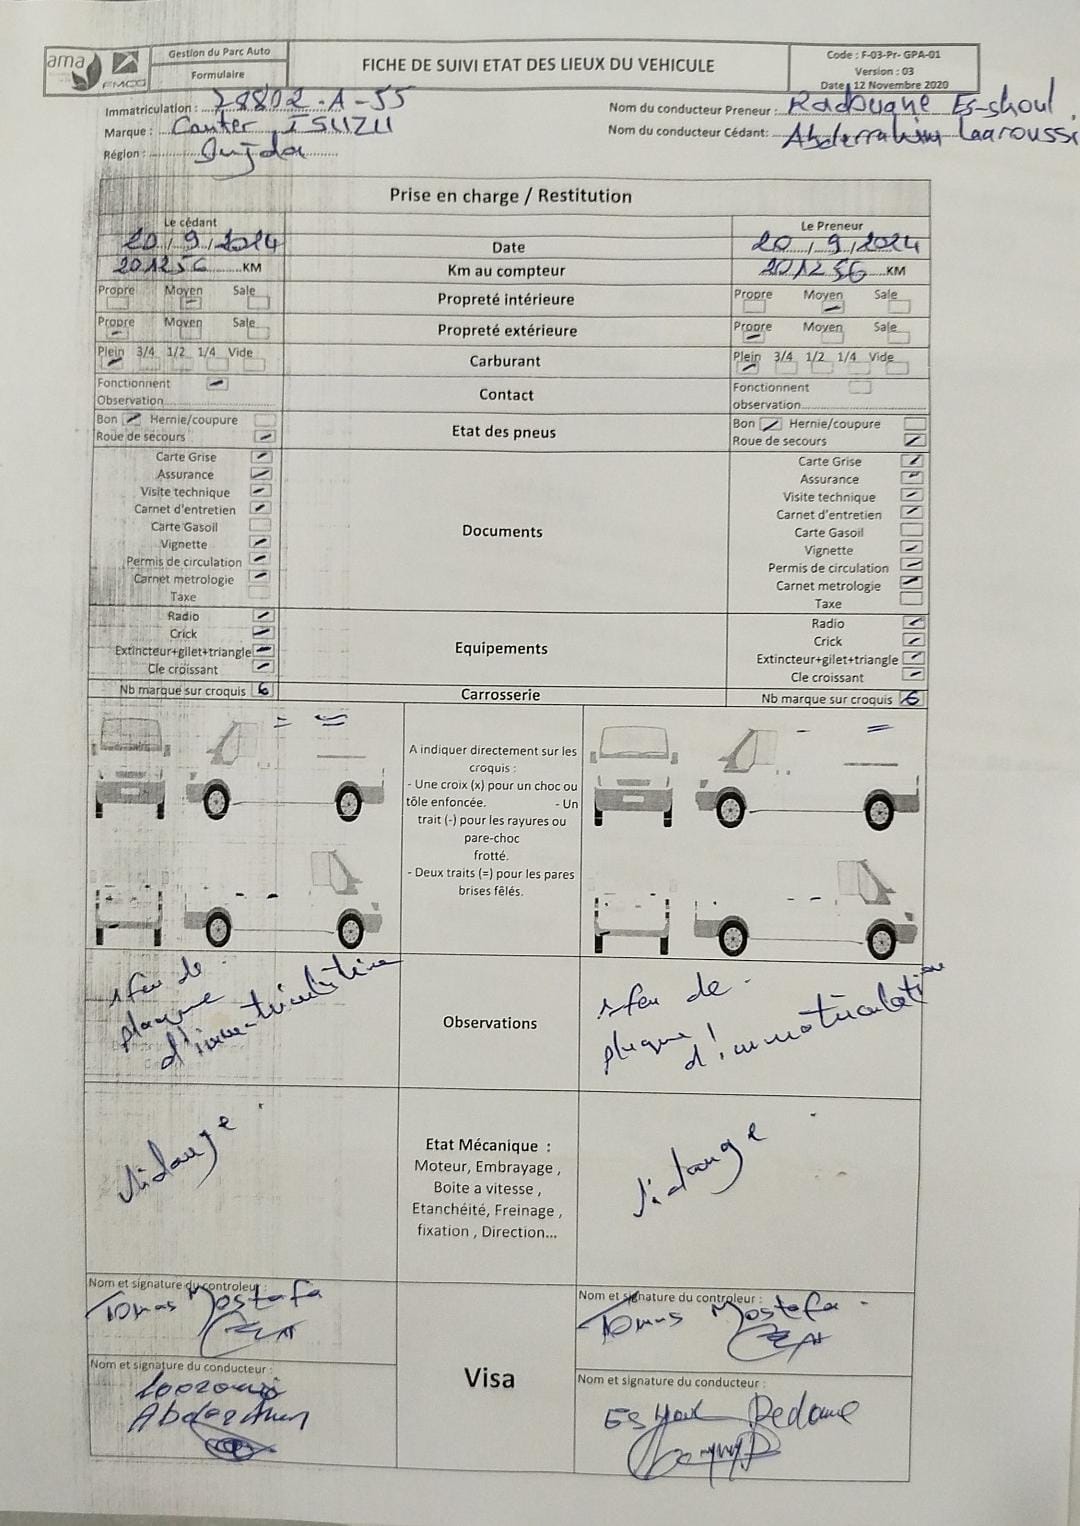 ama
FMCG
Gestion du Parc Auto
Formulaire
FICHE DE SUIVI ETAT DES LIEUX DU VEHICULE
Code : F-03-Pr- GPA-01
Version : 03
Date : 12 Novembre 2020
Immatriculation : 78802-A-55
Marque : Canter ISUZU
Région : Oujda
Nom du conducteur Preneur : Radouane Es-ghoul
Nom du conducteur Cédant: Abderrahim Laaroussi
Prise en charge / Restitution
Le cédant
Le Preneur
20/9/2024 Date 20/9/2024
201256 KM Km au compteur 201256 KM
Propre Moyen Sale Propreté intérieure Propre Moyen Sale
Propre Moyen Sale Propreté extérieure Propre Moyen Sale
Plein 3/4 1/2 1/4 Vide Carburant Plein 3/4 1/2 1/4 Vide
Fonctionnent Contact Fonctionnent
Observation observation
Bon Hernie/coupure Etat des pneus Bon Hernie/coupure
Roue de secours Roue de secours
Carte Grise Carte Grise
Assurance Assurance
Visite technique Visite technique
Carnet d'entretien Documents Carnet d'entretien
Carte Gasoil Carte Gasoil
Vignette Vignette
Permis de circulation Permis de circulation
Carnet metrologie Carnet metrologie
Taxe Taxe
Radio Radio
Crick Equipements Crick
Extincteur+gilet+triangle Extincteur+gilet+triangle
Cle croissant Cle croissant
Nb marque sur croquis 6 Carrosserie Nb marque sur croquis 6
A indiquer directement sur les
croquis :
- Une croix (x) pour un choc ou
tôle enfoncée. - Un
trait (-) pour les rayures ou
pare-choc
frotté.
- Deux traits (=) pour les pares
brises fêlés.
1 feu de
plaque
d'immatriculation
Observations
1 feu de
plaque
d'immatriculation
Vidange
Etat Mécanique :
Moteur, Embrayage ,
Boite a vitesse ,
Etanchéité, Freinage ,
fixation , Direction...
Vidange
Nom et signature du controleur :
Mostafa
Nom et signature du conducteur :
Visa
Nom et signature du controleur :
Mostafa
Nom et signature du conducteur :